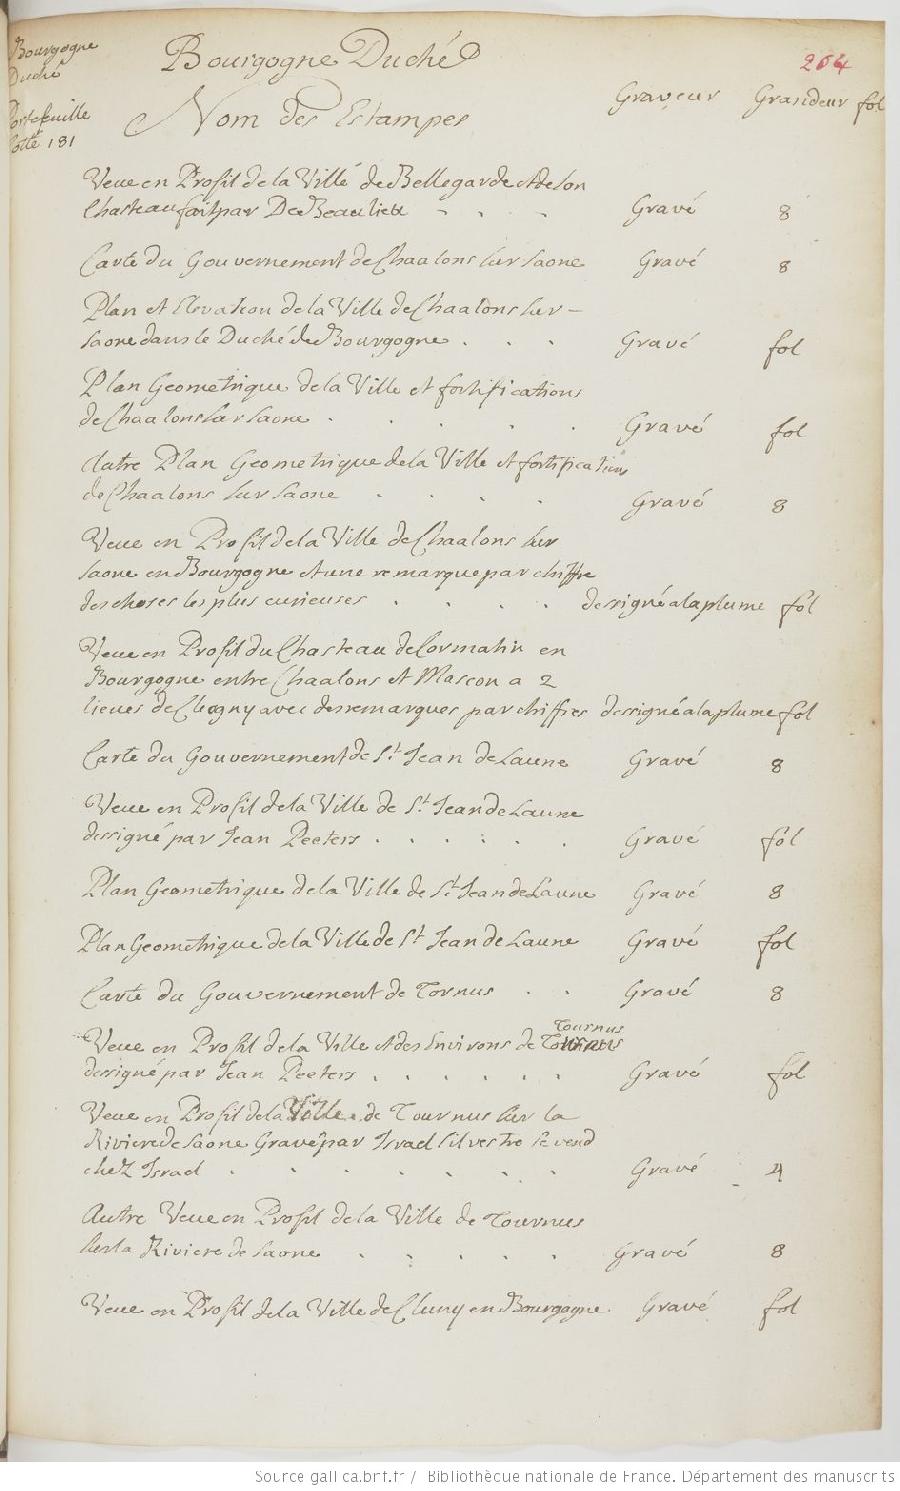 Bourgogne
Duché
Portefeuille
Cotté 181
Bourgogne Duché
264
Nom des Estampes Graveur Grandeur fol
Veue en Profil de la Ville de Bellegarde et de son
Chasteau fait par De Beaulieu Gravé 8
Carte du Gouvernement de Chaalons sur Saone Gravé 8
Plan et Elevation de la Ville de Chaalons sur –
Saone dans le Duché de Bourgogne Gravé fol
Plan Geometrique de la Ville et fortifications
de Chaalons sur Saone Gravé fol
Autre Plan Geometrique de la Ville et fortifications
de Chaalons sur Saone Gravé 8
Veue en Profil de la Ville de Chaalons sur
Saone en Bourgogne et une remarque par chiffre
des choses les plus curieuses dessigné a la plume fol
Veue en Profil du Chasteau de Cormatin en
Bourgogne entre Chaalons et Mascon a 2
lieues de Clugny avec des remarques par chiffres dessigné a la plume fol
Carte du Gouvernement de St. Jean de Laune Gravé 8
Veue en Profil de la Ville de St. Jean de Laune
dessigné par Jean Peeters Gravé fol
Plan Geometrique de la Ville de St. Jean de Laune Gravé 8
Plan Geometrique de la Ville de St Jean de Laune Gravé fol
Carte du Gouvernement de Tornus Gravé 8
Tournus
Veue en Profil de la Ville et des Environs de Tournus
dessigné par Jean Peeters Gravé fol
Veue en Profil de la Ville de Tournus sur la
Riviere de Saone Gravé par Israel Silvestre se vend
chez Israel Gravé 4
Autre Veue en Profil de la Ville de Tournus
sur la Riviere de Saone Gravé 8
Veue en Profil de la Ville de Cluny en Bourgogne Gravé fol
Source gallica.bnf.fr / Bibliothèque nationale de France. Département des manuscrits